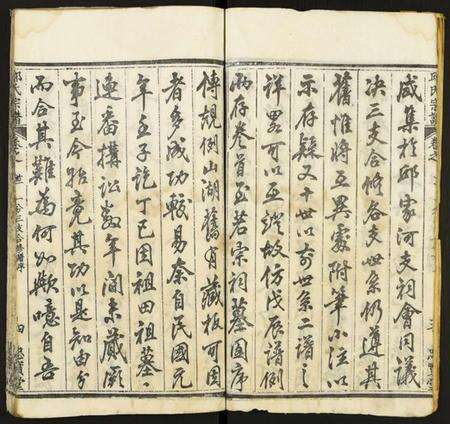 邱氏宗譜 卷之
咸集於邱家河支祠會同議
決三支合修各支世系仍遵其
舊惟將互異處附筆小注以
示存疑又十世以前世系二譜之
詳畧可以互證故仿戊辰譜例
兩存卷首至若宗祠墓图序
傳規例山湖舊有藏板可因
者多成功較易奈自民國元
年壬子訖丁巳因祖田祖墓
連番搆訟數年間未蕆厥
事至今始竟其功以是知由分
而合其難為何如歟噫自吾
邱氏宗譜 卷之 一分三支合修譜序 四